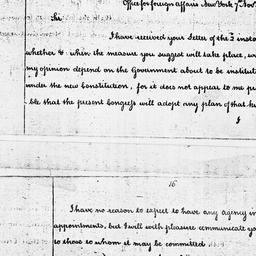 Office for foreign Affairs New York 7th Nov.
Sir
I have received your Letter of the 3 inst
whether & when the measure you suggest will take place,
my opinion depend on the Government about to be institut
under the new Constitution, for it does not appear to me pr
ble that the present Congress will adopt any plan of that
I
16
I have no reason to expect to have any agency in
appointments, but I will with pleasure communicate yo
to those to whom it may be committed